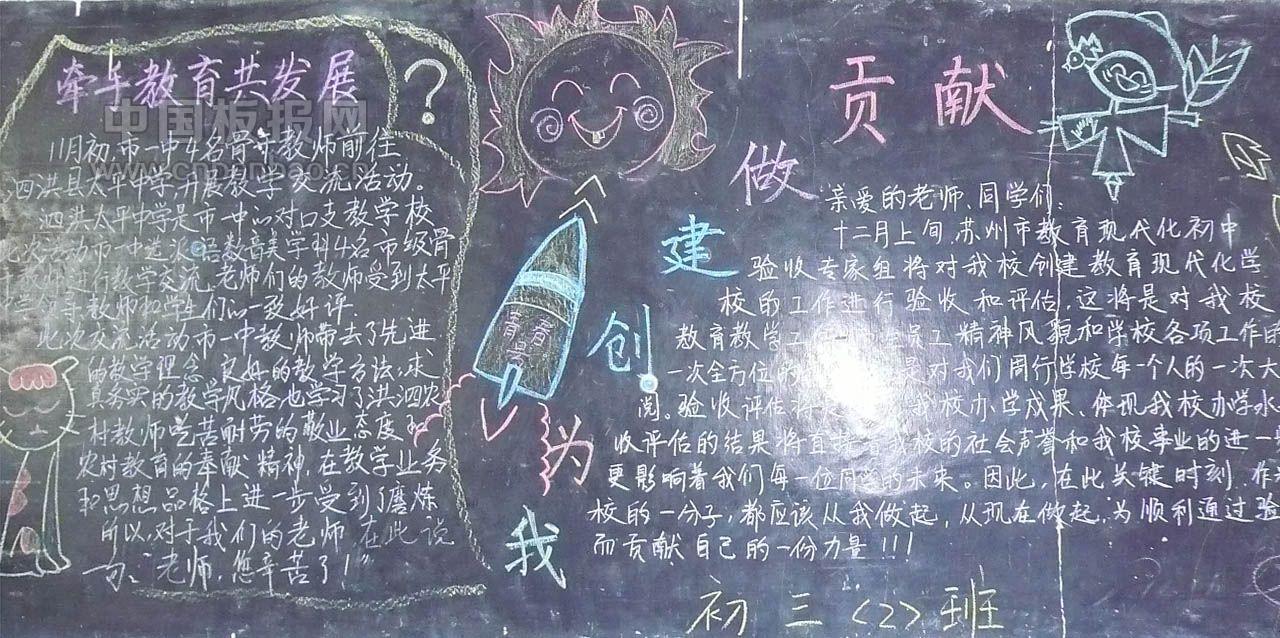 牵手教育共发展
?
中国板报网
www.cnbanbao.cn
11月初,市一中4名骨干教师前往
泗洪县太平中学开展教学交流活动。
泗洪太平中学是市一中心对口支教学校
此次活动市一中选派语数音美学科4名市级骨
教师进行教学交流,老师们的教师受到太平
中学领导教师和学生们一致好评.
此次交流活动市一中教师带去了先进
的教学理念,良好的教学方法,求
真务实的教学风格也学习了洪泗农
村教师吃苦耐劳的敬业态度和
农村教育的奉献精神,在教学业务
和思想品格上进一步受到了磨炼
所以,对于我们的老师,在此说
一句:“老师,您辛苦了!”
青春号
我为创建做贡献
亲爱的老师、同学们:
十二月上旬,苏州市教育现代化初中
验收专家组将对我校创建教育现代化学
校的工作进行验收和评估,这将是对我校
教育教学工 员工精神风貌和学校各项工作的
一次全方位的 是对我们周行学校每一个人的一次大
阅。验收评估将是 我校办学成果、体现我校办学水
收评估的结果将直接 着我校的社会声誉和我校事业的进一
更影响着我们每一位同学的未来。因此,在此关键时刻,作
校的一分子,都应该从我做起,从现在做起,为顺利通过验
而贡献自己的一份力量!!!
初三<2>班